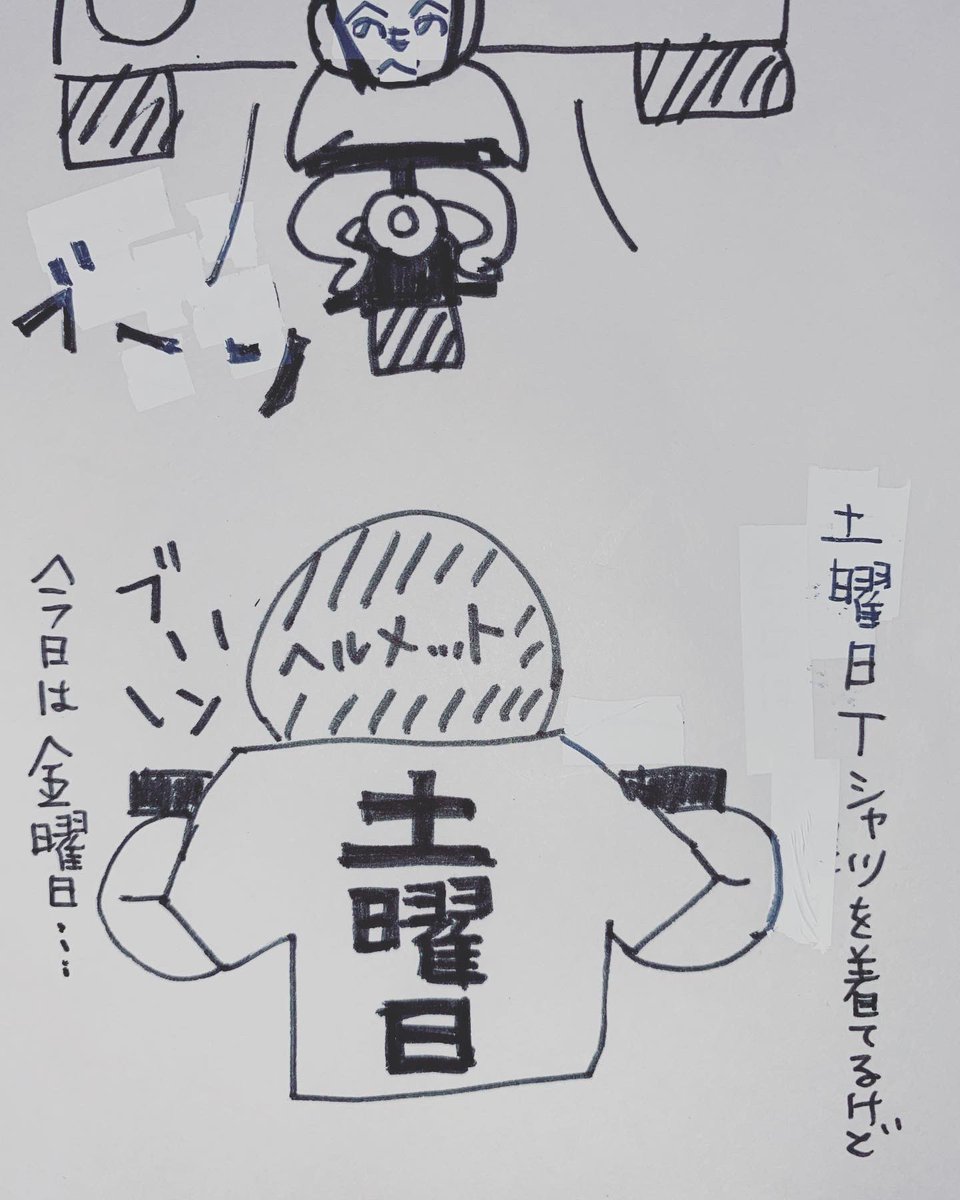 ブーン
土曜日Tシャツを着てるけど
ヘルメット
土曜日
ブーン
今日は金曜日…